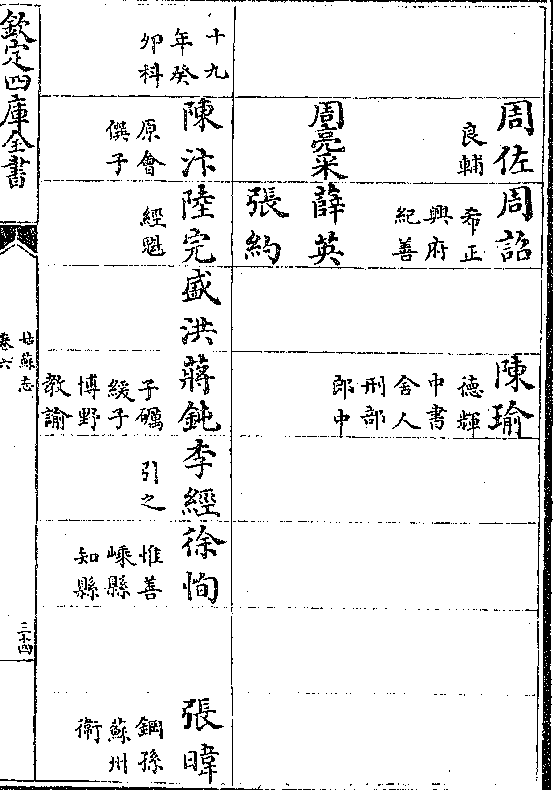 周佐
良輔
周詔
希正
興府
紀善
陳瑜
德輝
中書
舍人
刑部
郎中
周亮采
薛英
張約
十九
年癸
卯科
陳汴
原會
僎子
陸完
經魁
盛洪
蔣鈍
子礪
緩子
博野
教諭
李經
引之
徐恂
惟善
嵊縣
知縣
張暐
鋼孫
蘇州
衛
欽定四庫全書
姑蘇志
卷六
三十四